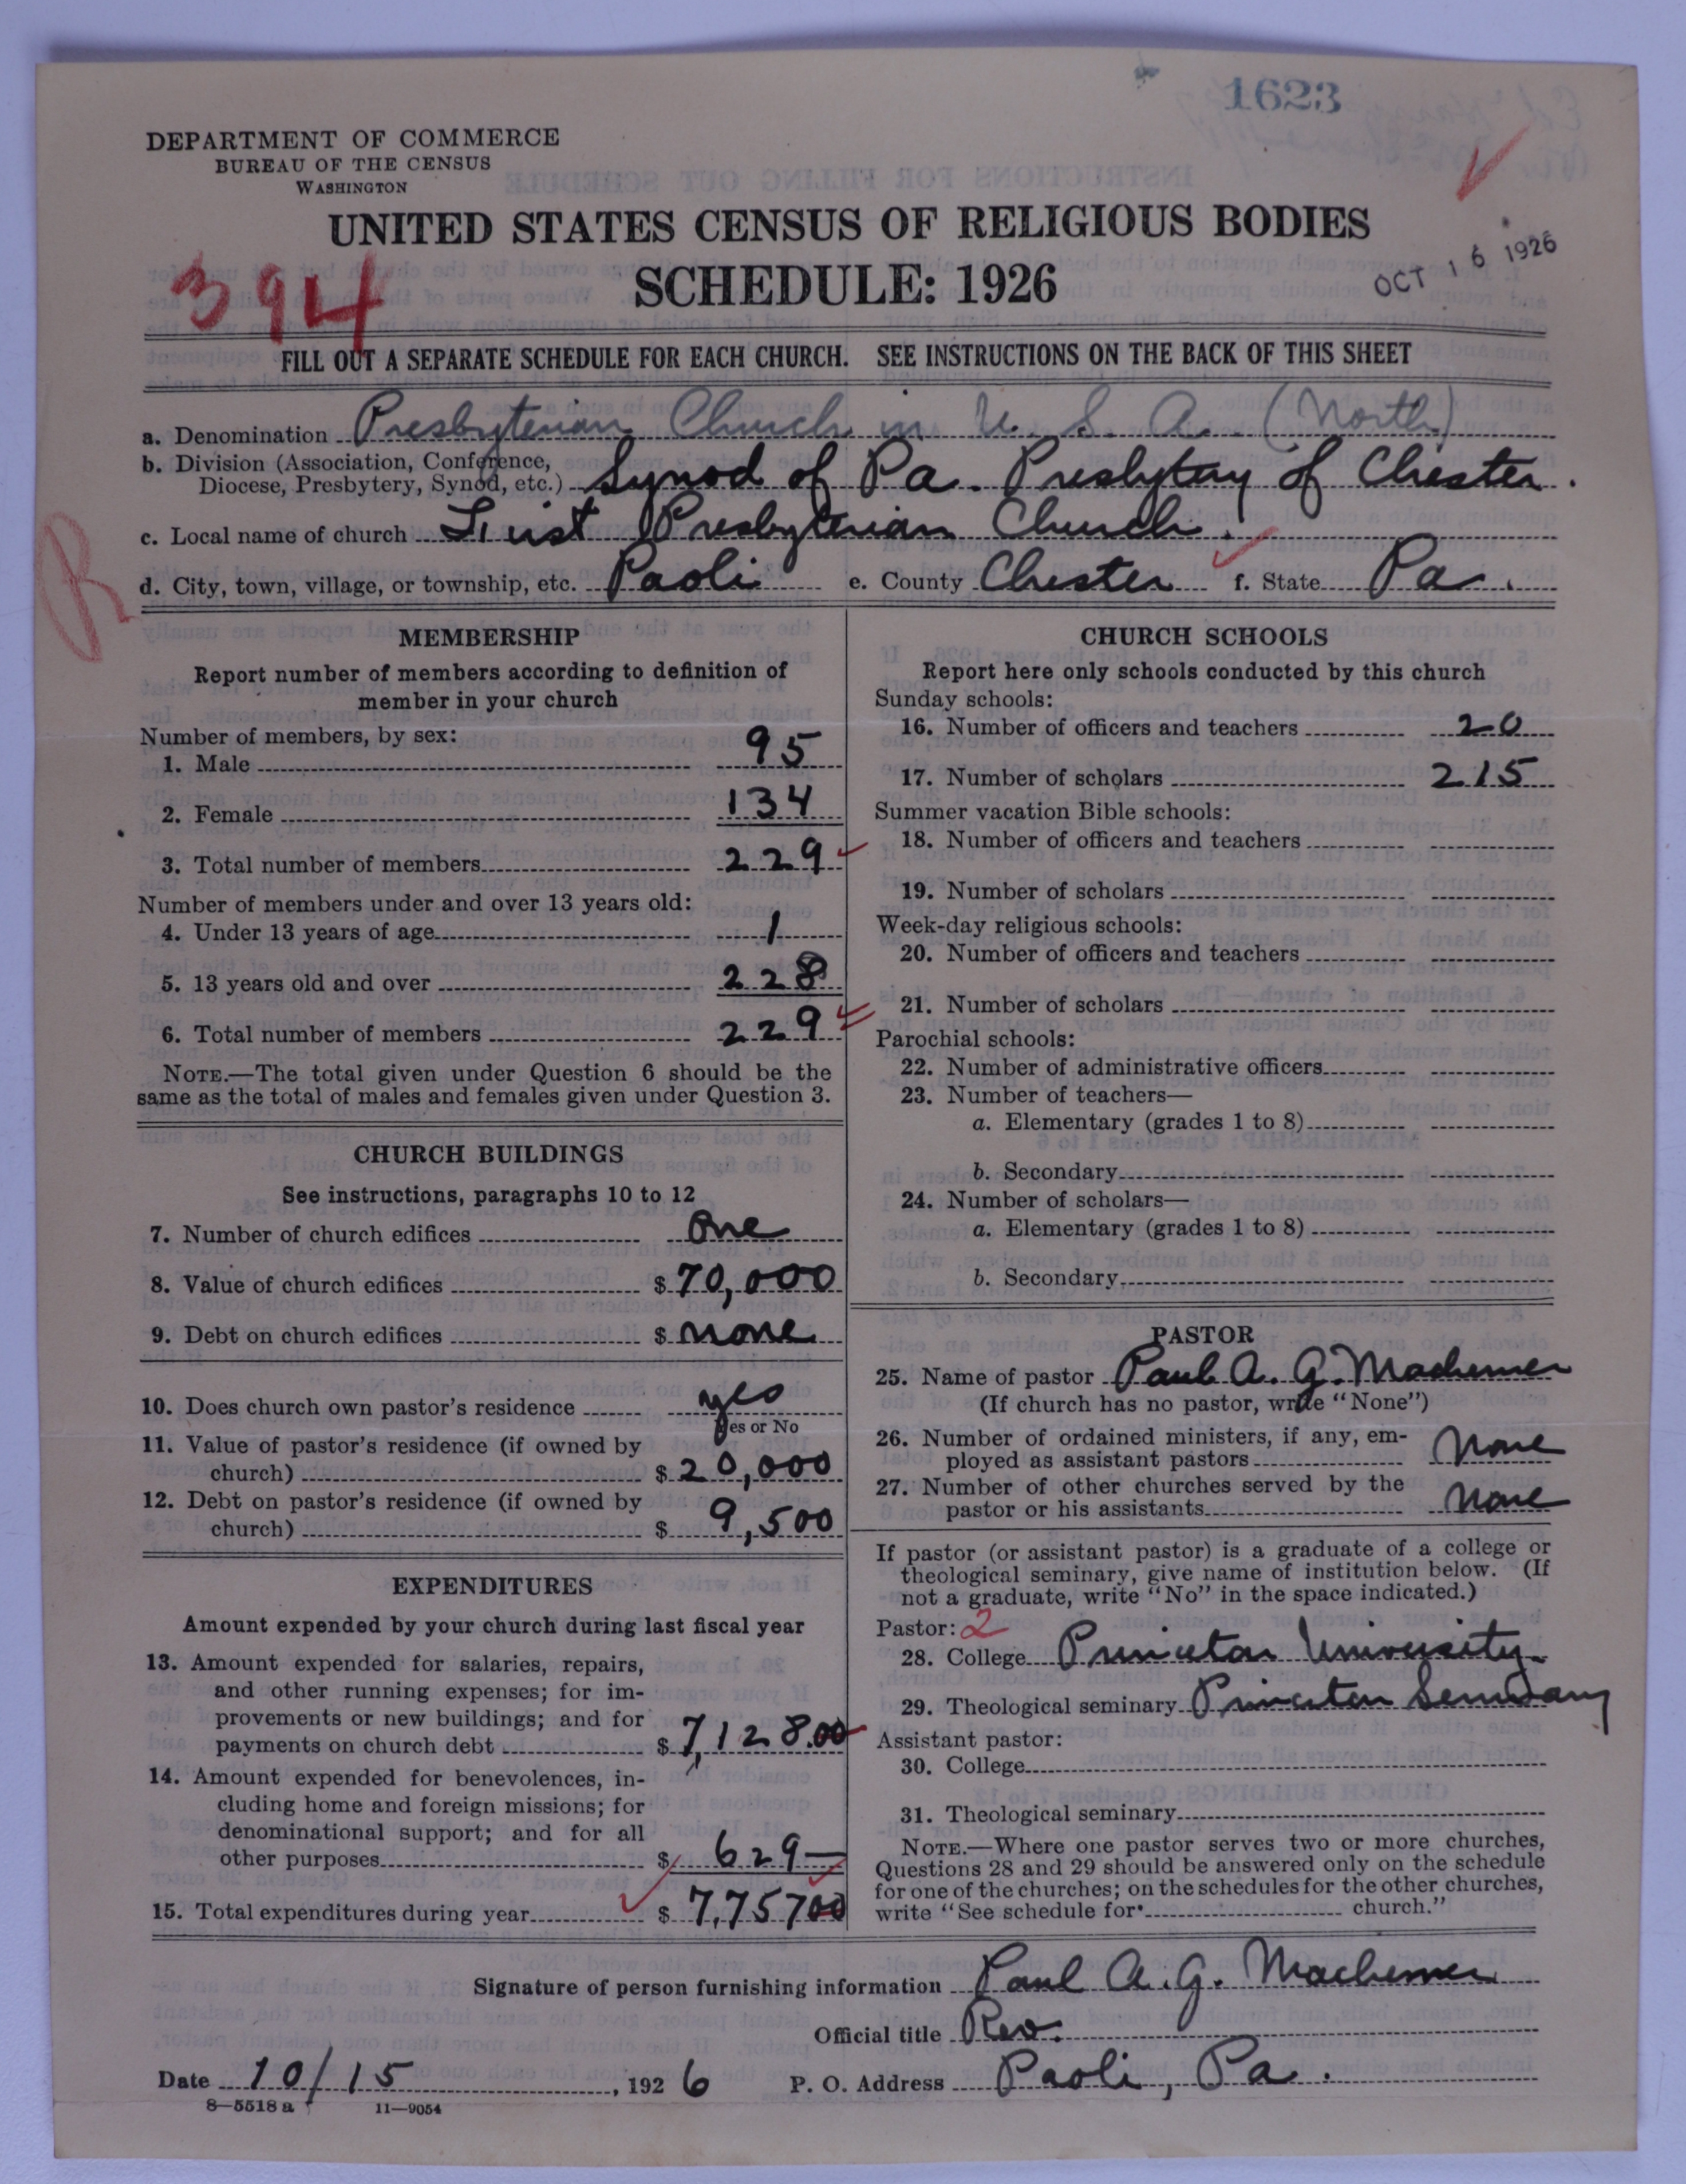 1623
DEPARTMENT OF COMMERCE
BUREAU OF THE CENSUS
WASHINGTON
UNITED STATES CENSUS OF RELIGIOUS BODIES
SCHEDULE: 1926
OCT 16 1926
394
FILL OUT A SEPARATE SCHEDULE FOR EACH CHURCH. SEE INSTRUCTIONS ON THE BACK OF THIS SHEET
a. Denomination Presbyterian Church in U. S. A. (North)
b. Division (Association, Conference,
Diocese, Presbytery, Synod, etc.) Synod of Pa. Presbytery of Chester.
c. Local name of church First Presbyterian Church.
R
d. City, town, village, or township, etc. Paoli e. County Chester f. State Pa.
MEMBERSHIP
Report number of members according to definition of
member in your church
Number of members, by sex:
1. Male 95
2. Female 134
3. Total number of members 229
Number of members under and over 13 years old:
4. Under 13 years of age 1
5. 13 years old and over 228
6. Total number of members 229
NOTE.—The total given under Question 6 should be the
same as the total of males and females given under Question 3.
CHURCH BUILDINGS
See instructions, paragraphs 10 to 12
7. Number of church edifices One
8. Value of church edifices $ 70,000
9. Debt on church edifices $ none
10. Does church own pastor's residence yes
Yes or No
11. Value of pastor's residence (if owned by
church) $ 20,000
12. Debt on pastor's residence (if owned by
church) $ 9,500
EXPENDITURES
Amount expended by your church during last fiscal year
13. Amount expended for salaries, repairs,
and other running expenses; for im-
provements or new buildings; and for
payments on church debt $ 7,128.00
14. Amount expended for benevolences, in-
cluding home and foreign missions; for
denominational support; and for all
other purposes $ 629—
15. Total expenditures during year $ 7,75700
CHURCH SCHOOLS
Report here only schools conducted by this church
Sunday schools:
16. Number of officers and teachers 20
17. Number of scholars 215
Summer vacation Bible schools:
18. Number of officers and teachers
19. Number of scholars
Week-day religious schools:
20. Number of officers and teachers
21. Number of scholars
Parochial schools:
22. Number of administrative officers
23. Number of teachers—
a. Elementary (grades 1 to 8)
b. Secondary
24. Number of scholars—
a. Elementary (grades 1 to 8)
b. Secondary
PASTOR
25. Name of pastor Paul A. G. Machemer
(If church has no pastor, write "None")
26. Number of ordained ministers, if any, em-
ployed as assistant pastors None
27. Number of other churches served by the
pastor or his assistants None
If pastor (or assistant pastor) is a graduate of a college or
theological seminary, give name of institution below. (If
not a graduate, write "No" in the space indicated.)
Pastor: 2
28. College Princeton University
29. Theological seminary Princeton Seminary
Assistant pastor:
30. College
31. Theological seminary
NOTE.—Where one pastor serves two or more churches,
Questions 28 and 29 should be answered only on the schedule
for one of the churches; on the schedules for the other churches,
write "See schedule for church."
Signature of person furnishing information Paul A. G. Machemer
Official title Rev.
Date 10/15, 1926 P. O. Address Paoli, Pa.
8—5518 a 11—9054